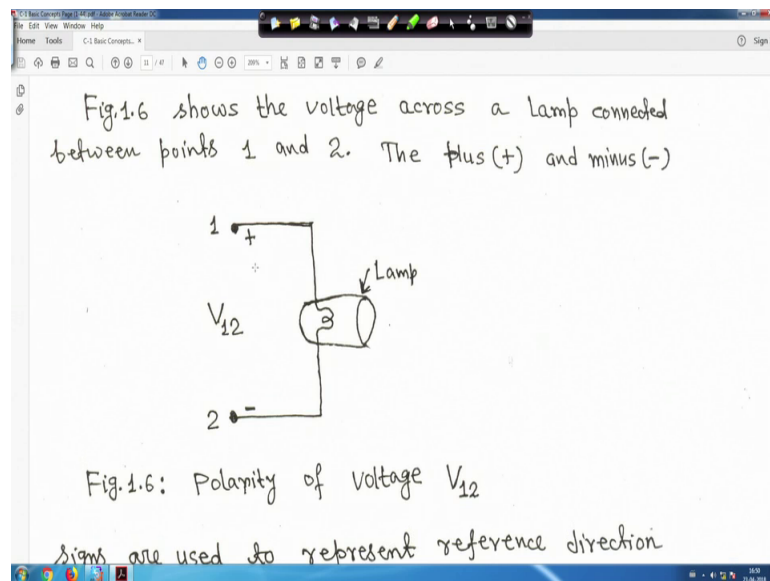 C-1 Basic Concepts Page (1-44).pdf - Adobe Acrobat Reader DC
File Edit View Window Help
Home Tools C-1 Basic Concepts... × Sign
11 / 47 200%
Fig.1.6 shows the voltage across a Lamp connected
between points 1 and 2. The plus (+) and minus (-)
1
+
Lamp
V12
2
-
Fig.1.6: Polarity of voltage V12
signs are used to represent reference direction
16:50